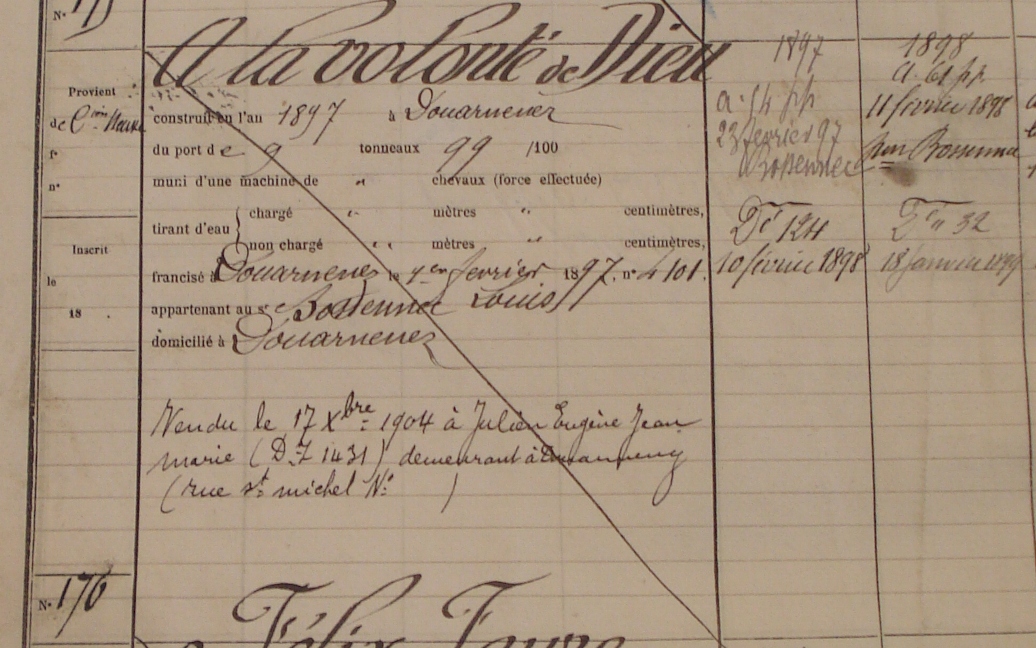 N°
A la volonté de Dieu
Provient
de Con Neuve
f°
n°
Inscrit
le
18 .
construit en l'an 1897 à Douarnenez
du port de 9 tonneaux 99 /100
muni d'une machine de " chevaux (force effectuée)
tirant d'eau
chargé " mètres " centimètres,
non chargé " mètres " centimètres,
francisé à Douarnenez le février 1897, n° 4101.
appartenant au sr Louis
domicilié à Douarnenez
Vendu le 17 Xbre 1904 à Julien Eugène Jean
marie (DZ 1431) demeurant à
(rue st michel N° )
1897
23 février 97
Dt 124
10 février 1898
1898
11 février 1898
32
18 janvier
N° 176
Félix Faure